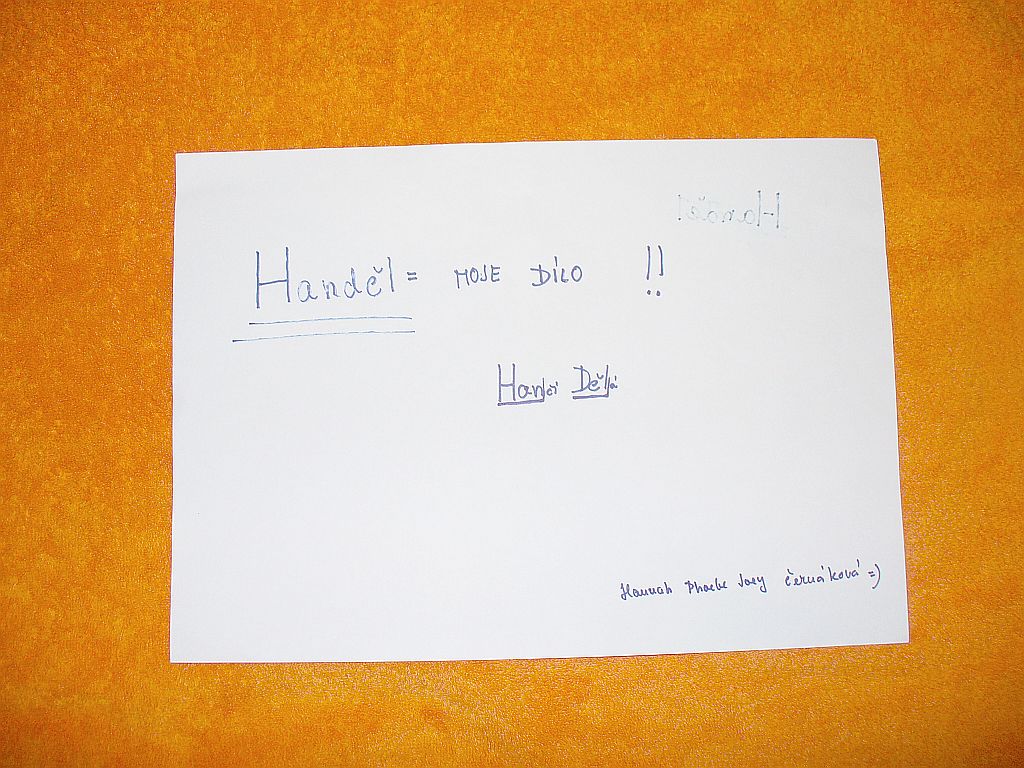 Handěl = MOJE DÍLO !!
Hančí Dělá
Hannah Phoebe Joey Černáková =)